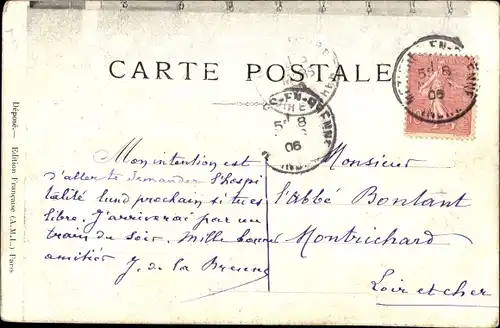 CARTE POSTALE
Déposé — Edition Française (A.M.L.) Paris
EN-BRENNE
5E 8
06
S-EN-BRENNE
5E 8
06
Mon intention est
d'aller te demander l'hospi
talité lundi prochain si tu es
libre. J'arriverai par un
train du soir. Mille bonnes
amitiés J. de la Brenne
Monsieur
l'abbé Bontant
Montrichard
Loir et cher